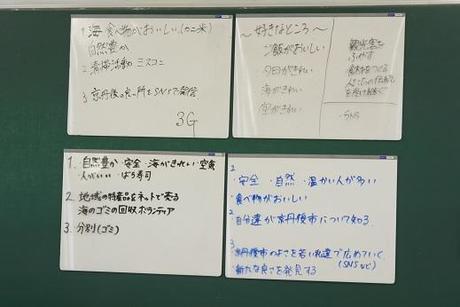 1 海 食べ物がおいしい(カニ 米)
自然豊か
2 清掃活動
3 京丹後の良い所をSNSで発信
3G
〜好きなところ〜
ご飯がおいしい
夕日がきれい
海がきれい
空がきれい
観光客を
ふやす
・SNS
1. 自然豊か・安全・海がきれい・空気
人がいい ばら寿司
2 地域の特産品をネットで売る
海のゴミの回収ボランティア
3. 分別(ゴミ)
・安全 ・自然 ・温かい人が多い
・食べ物がおいしい
2
・自分達が京丹後市について知る
3
京丹後市のよさを若い報道で広めていく
(SNSなど)
新たな良さを発見する